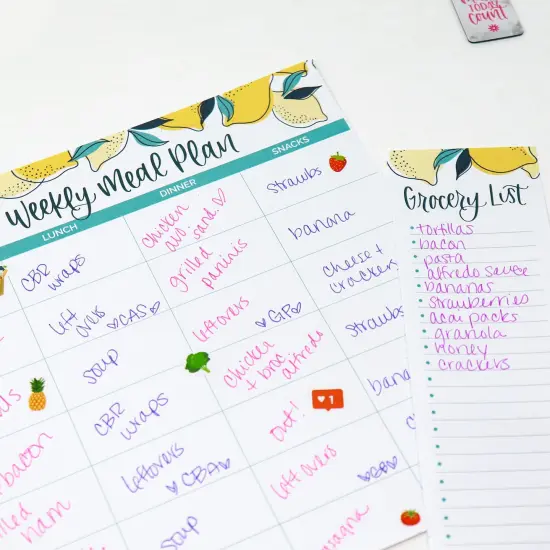 TODAY
COUNT
Weekly Meal Plan
LUNCH
DINNER
SNACKS
CBR
wraps
chicken
avo. sand. ♡
strawbs
left
overs
♡CAS♡
grilled
paninis
banana
soup
leftovers
♡GP♡
cheese +
crackers
CBR
wraps
chicken
+ broc
alfredo
strawbs
bacon
leftovers
♡CBA♡
out!
1
ham
soup
left overs
Grocery List
tortillas
bacon
pasta
alfredo sauce
bananas
strawberries
acai packs
granola
honey
crackers